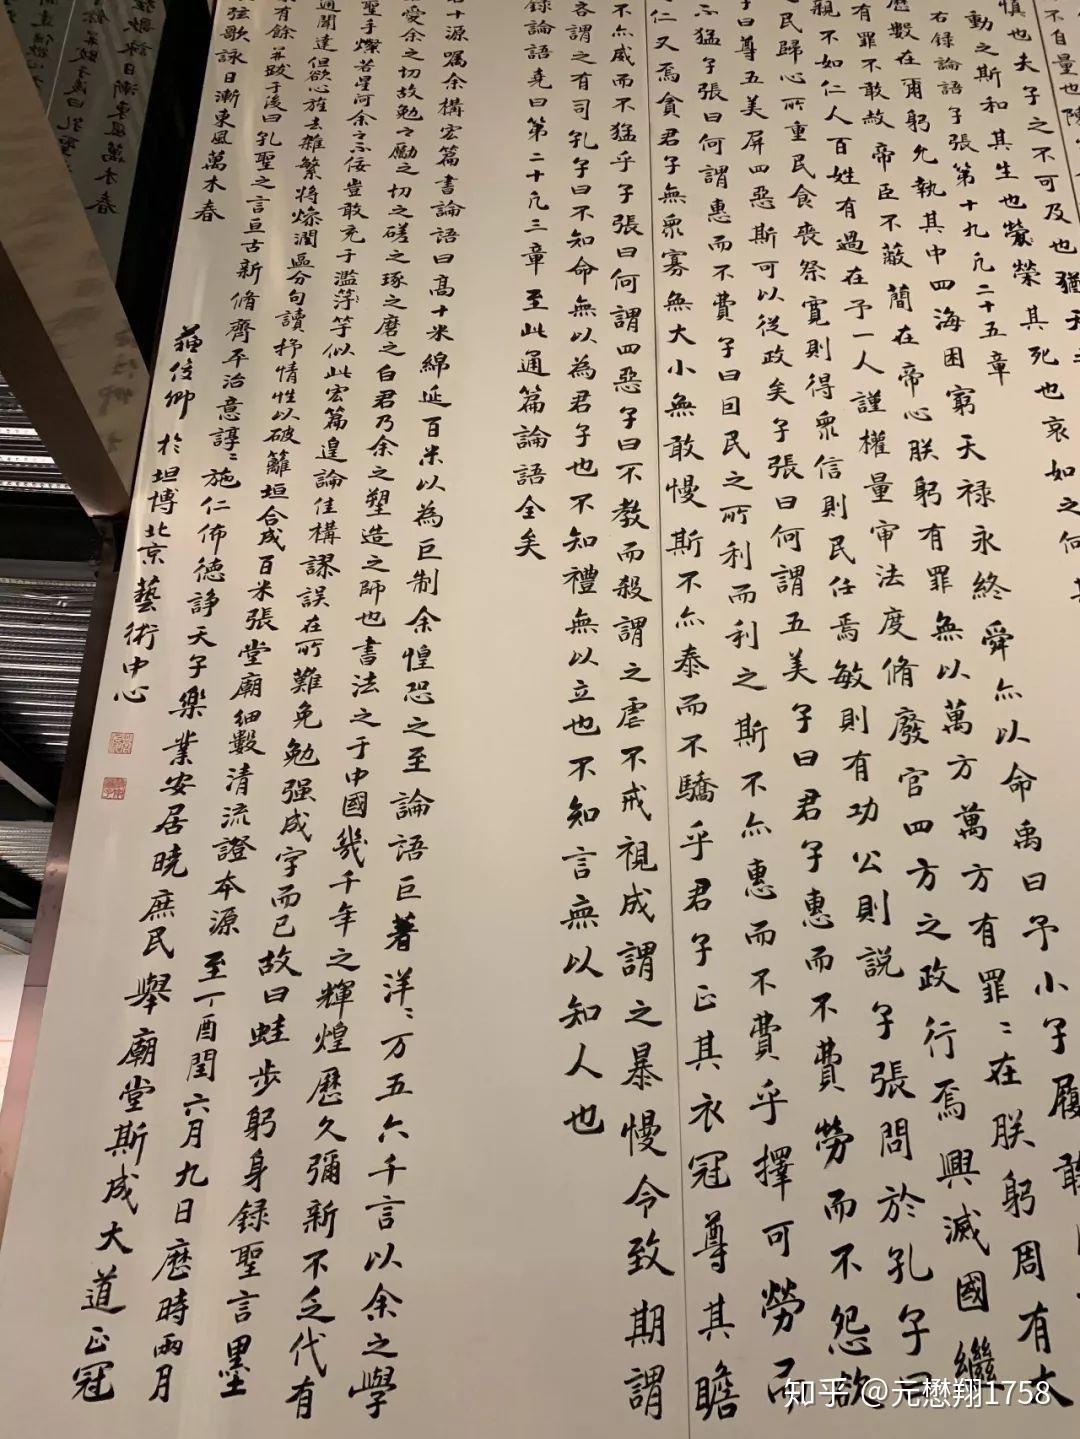 不自量也陳
慎也夫子之不可及也猶天
動之斯和其生也榮其死也哀如之何其
右錄論語子張第十九凡二十五章
舜亦以命禹曰予小子履敢
曆數在爾躬允執其中四海困窮天祿永終
有罪不敢赦帝臣不蔽簡在帝心朕躬有罪無以萬方萬方有罪〻在朕躬周有大
親不如仁人百姓有過在予一人謹權量审法度脩廢官四方之政行焉興滅國繼
民歸心所重民食喪祭寬則得眾信則民任焉敏則有功公則説子張問於孔子曰
曰尊五美屏四惡斯可以從政矣子張曰何謂五美子曰君子惠而不費勞而不怨欲
而不猛子張曰何謂惠而不費子曰因民之所利而利之斯不亦惠而不費乎擇可勞而
仁又焉貪君子無眾寡無大小無敢慢斯不亦泰而不驕乎君子正其衣冠尊其瞻
不亦威而不猛乎子張曰何謂四惡子曰不教而殺謂之虐不戒視成謂之暴慢令致期謂
吝謂之有司孔子曰不知命無以為君子也不知禮無以立也不知言無以知人也
錄論語堯曰第二十凡三章至此通篇論語全矣
君十源囑余構宏篇書論語曰高十米綿延百米以為巨制余惶恐之至論語巨著洋〻万五六千言以余之學
愛余之切故勉之勵之切之磋之琢之磨之自君乃余之塑造之師也書法之于中國幾千年之輝煌歷久彌新不乏代有
聖手燦若星河余之不佞豈敢充于濫竽竽似此宏篇遑論佳構謬誤在所難免勉强成字而已故曰蛙步躬身録聖言墨
通聞達但欲心旌去雜繁將燥潤區分句讀抒情性以破籬垣合成百米張堂廟細數清流證本源至丁酉閏六月九日麽時兩月
有餘并跋于後曰孔聖之言亘古新脩齊平治意諄〻施仁佈德諍天子樂業安居曉庶民舉廟堂斯成大道正冠
弦歌詠日漸東風萬木春
於坦博北京藝術中心
知乎 @元懋翔1758